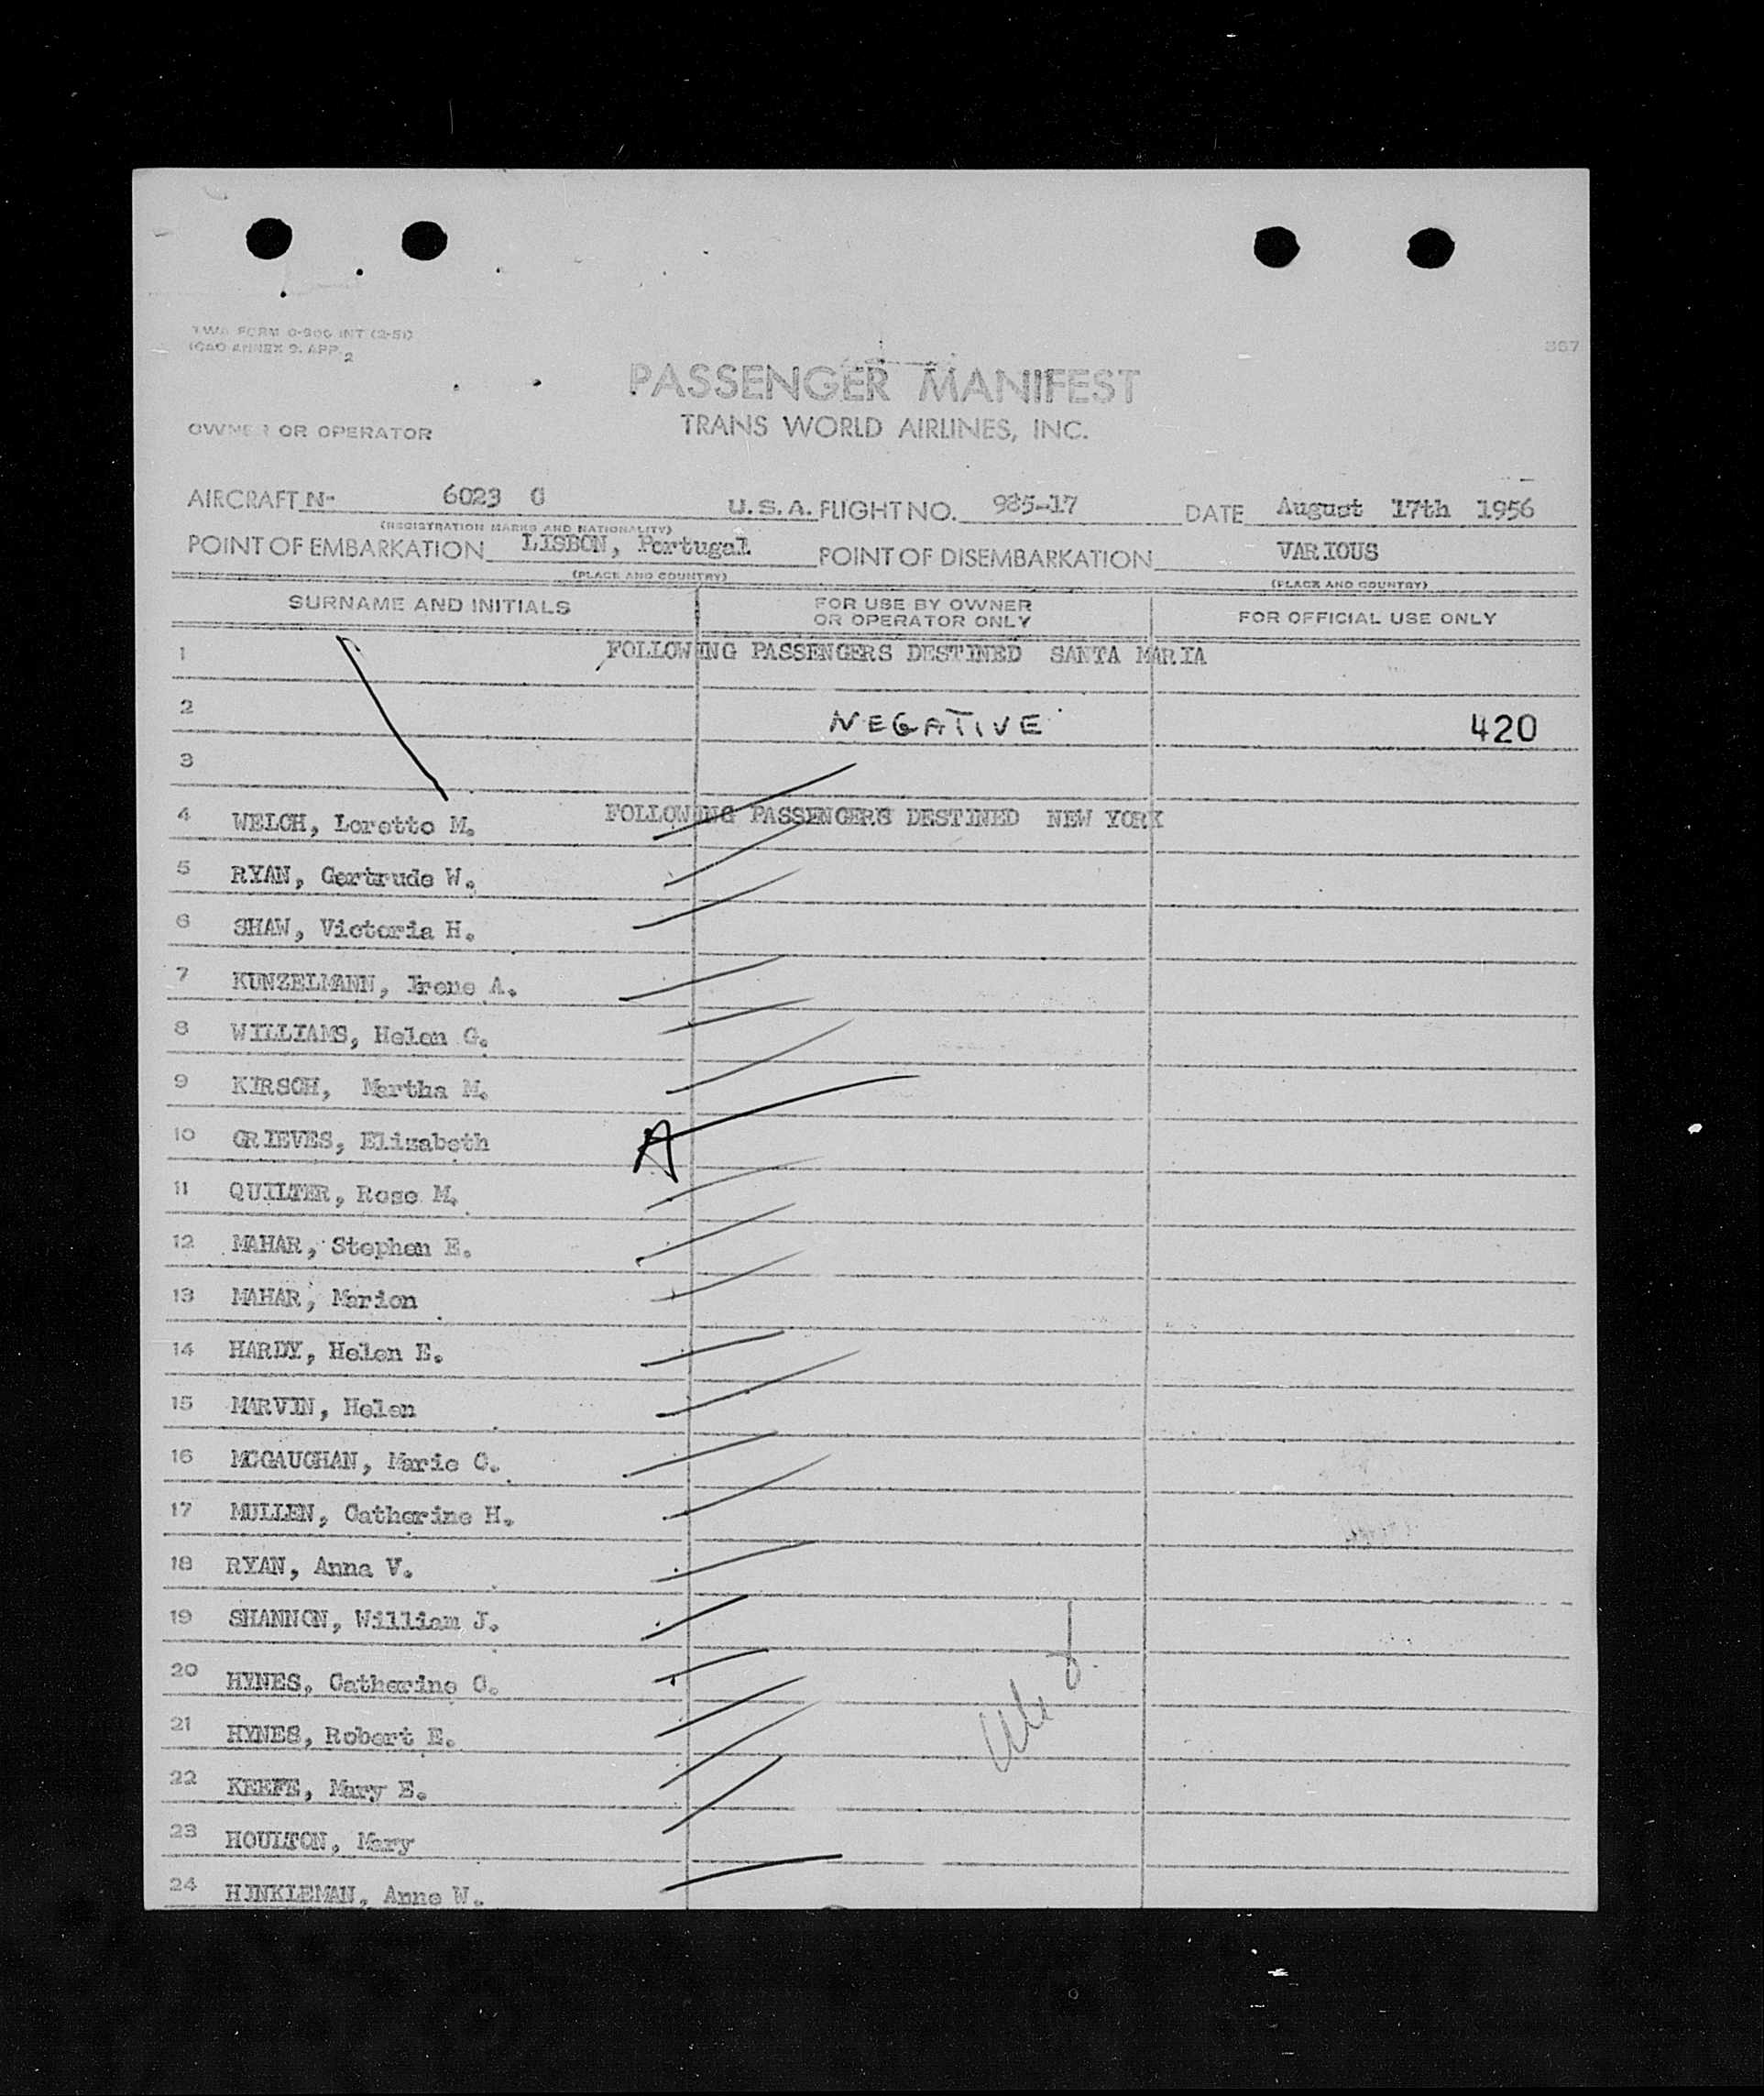 TWA FORM O-806 INT (2-51)
ICAO ANNEX 9. APP 2
867
PASSENGER MANIFEST
OWNER OR OPERATOR
TRANS WORLD AIRLINES, INC.
AIRCRAFT N- 6023 C U.S.A. FLIGHT NO. 985-17 DATE August 17th 1956
(REGISTRATION MARKS AND NATIONALITY)
POINT OF EMBARKATION LISBON, Portugal POINT OF DISEMBARKATION VARIOUS
(PLACE AND COUNTRY) (PLACE AND COUNTRY)
SURNAME AND INITIALS FOR USE BY OWNER OR OPERATOR ONLY FOR OFFICIAL USE ONLY
1 FOLLOWING PASSENGERS DESTINED SANTA MARIA
2 NEGATIVE 420
3
4 WELCH, Loretto M. FOLLOWING PASSENGERS DESTINED NEW YORK
5 RYAN, Gertrude W.
6 SHAW, Victoria H.
7 KUNZELMANN, Irene A.
8 WILLIAMS, Helen G.
9 KIRSCH, Martha M.
10 GRIEVES, Elizabeth A
11 QUILTER, Rose M.
12 MAHAR, Stephen E.
13 MAHAR, Marion
14 HARDY, Helen E.
15 MARVIN, Helen
16 MCGAUGHAN, Marie C.
17 MULLEN, Catherine H.
18 RYAN, Anna V.
19 SHANNON, William J.
20 HYNES, Catherine C.
21 HYNES, Robert E.
22 KEEFE, Mary E.
23 HOULTON, Mary
24 HINKLEMAN, Anne W.